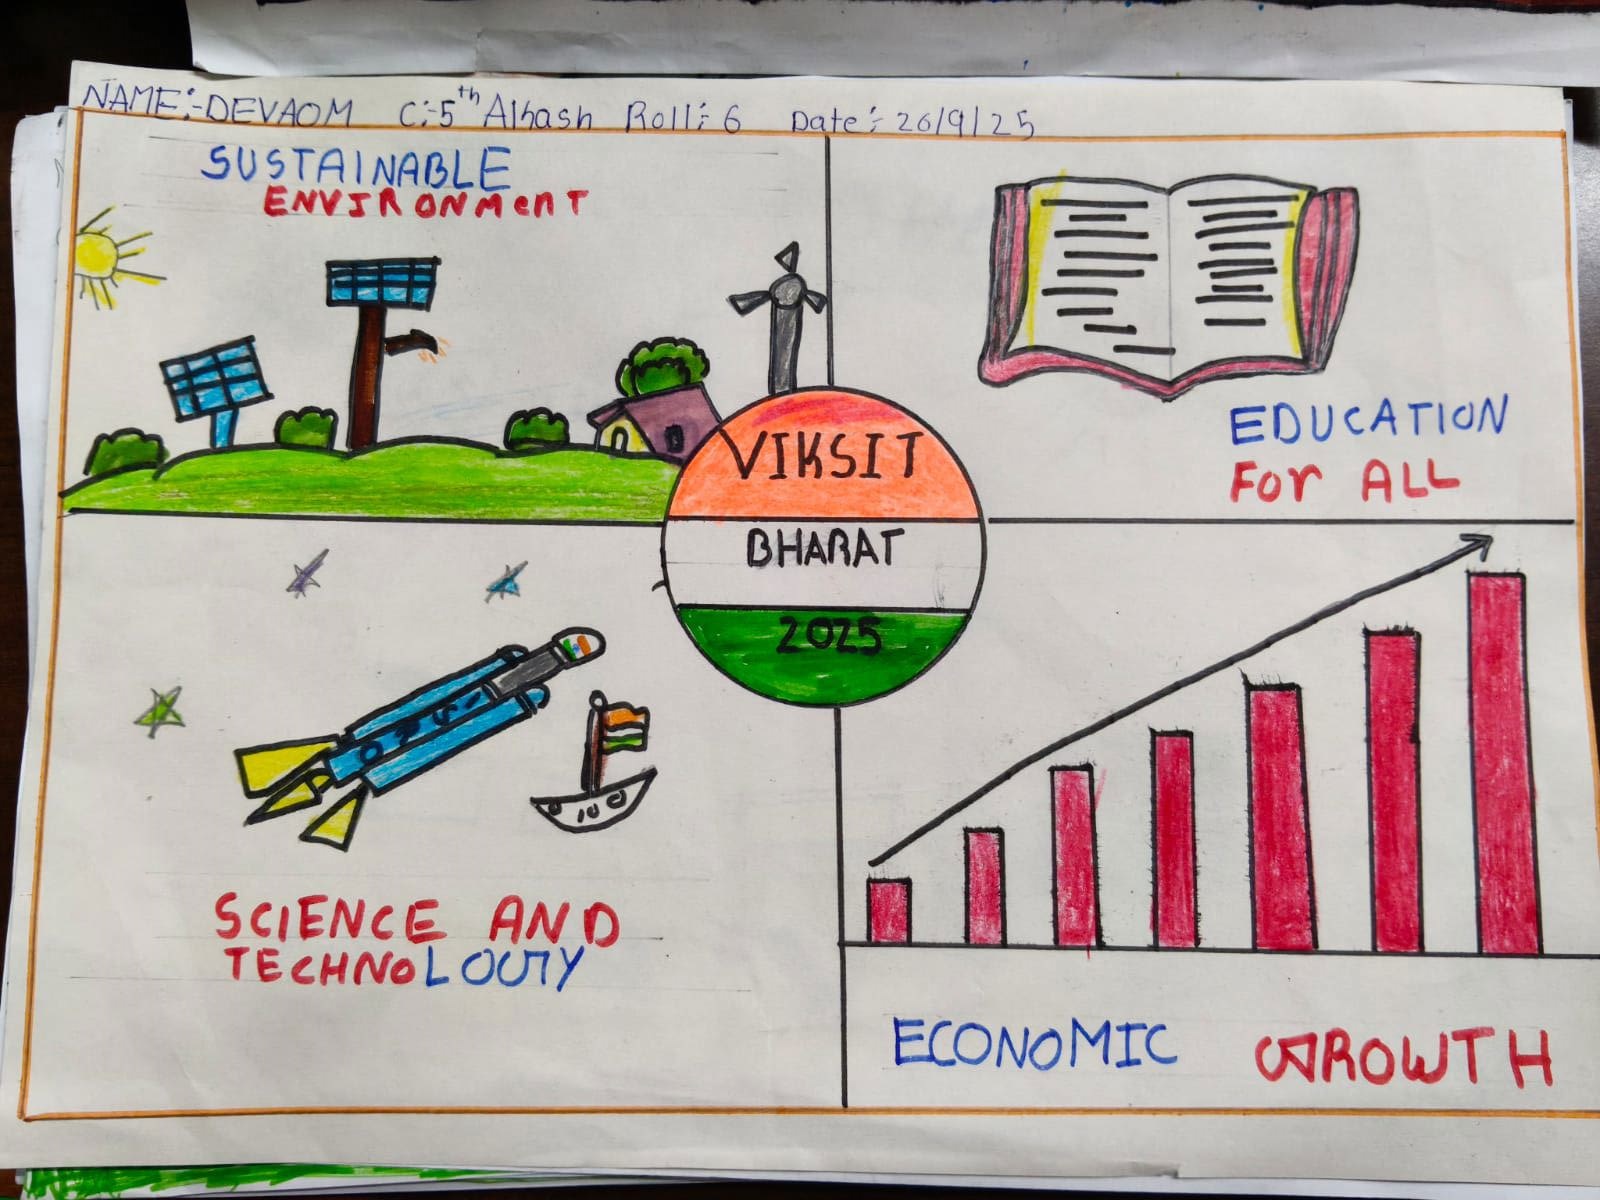 NAME:-DEVAOM C:-5th Alhash Roll:- 6 Date:- 26/9/25
SUSTAINABLE
ENVIRONMENT
EDUCATION
FOR ALL
VIKSIT
BHARAT
2025
SCIENCE AND
TECHNOLOGY
ECONOMIC GROWTH